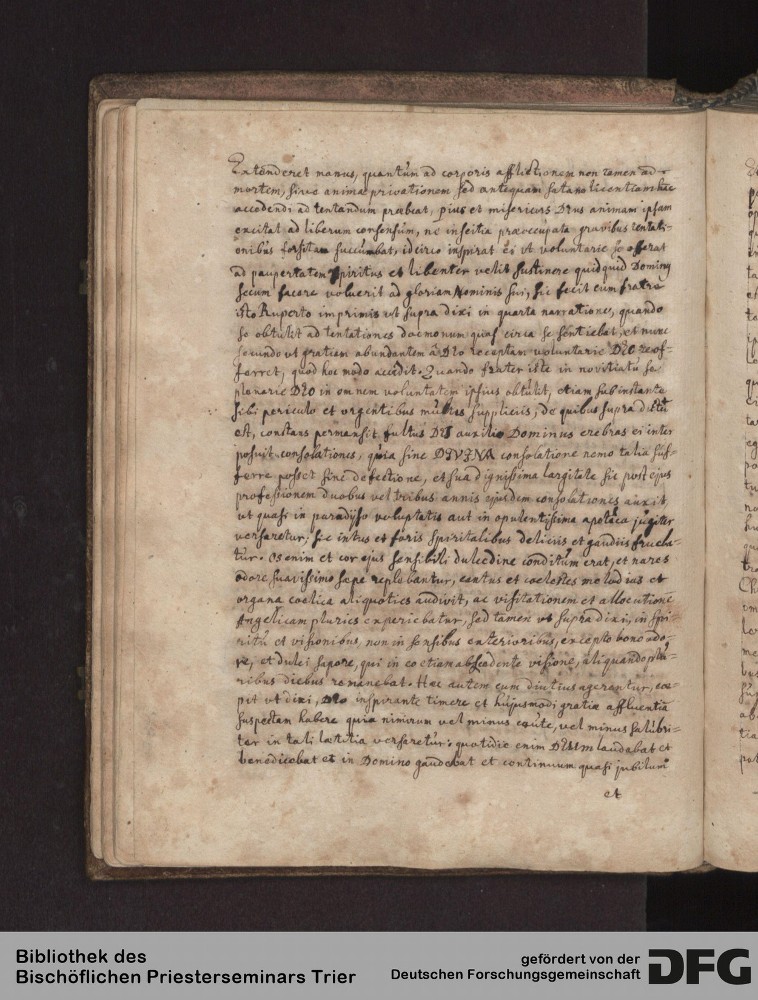 Extenderet manus, quantùm ad corporis afflictionem non tamen ad
mortem, sive animæ privationem sed antequam satanæ licentiam hac
accedendi ad tentandum præbeat, pius et misericors DEus animam ipsam
excitat ad liberum consensùm, ne inscitia præoccupata gravibus tentati-
onibùs forsitan succùmbat, idcirco inspirat Ei ut voluntarie se offerat
ad paupertatem Spiritus et libenter velit sustinere quidquid Dominus
secum facere voluerit ad gloriam Nominis sui, sic fecit cum fratre
isto Ruperto imprimis ut supra dixi in quarta narratione, quando
se obtulit ad tentationes dæmonum quas circa se sentiebat, et nunc
secundo ut gratiam abundantem à DEO receptam voluntarie DEO reof-
ferret, quod hoc modo accidit. Quando frater iste in novitiatu se
plenarie DEO in omnem voluntatem ipsius obtùlit, etiam sub instante
sibi periculo et urgentibus multis suppliciis, de quibus supra dictū
est, constans permansit fultus DEI auxilio Dominus crebras ei inter
posuit consolationes, quia sine DIVINA consolatione nemo talia suf-
ferre posset sine defectione, et sua dignissima largitate sic post ejus
professionem duobus vel tribus annis ejusdem consolationes auxit,
ut quasi in paradyso voluptatis aut in opulentissima apoteca jugiter
versaretur, sic intus et foris spiritalibus deliciis et gaudiis frueba-
tur. Os enim et cor ejus sensibili dulcedine conditùm erat, et nares
odore suavissimo sæpe replebantur, cantus et coelestes melodias et
organa coelica aliquoties audivit, ac visitationem et allocutione
Angelicam pluries experiebatur, sed tamen ut supra dixi, in spi-
ritù et visionibus, non in sensibus exterioribus, excepto bono odo-
re, et dulci sapore, qui in eo etiam abscedente visione, aliquando plu-
ribus diebus remanebat. Hac autem cum diutius agerentur, coe-
pit ut dixi, DEO inspirante timere et hùjusmodi gratiæ affluentia
suspectam habere quia nimirum vel minus caute, vel minus salubri-
ter in tali lætitia versaretur: quotidie enim DEUM laudabat et
benedicebat et in Domino gaudebat et continuum quasi jubilum
et
Bibliothek des
Bischöflichen Priesterseminars Trier
gefördert von der
Deutschen Forschungsgemeinschaft
DFG